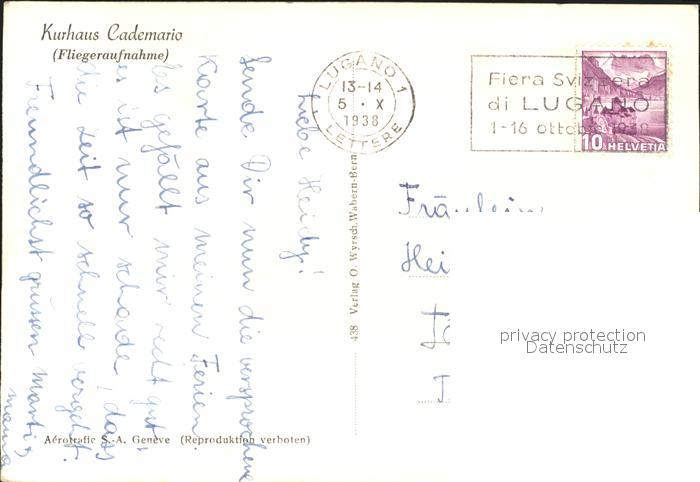 Kurhaus Cademario
(Fliegeraufnahme)
LUGANO 1
13-14
5 · X
1938
LETTERE
Fiera Svizzera
di LUGANO
1-16 ottobre 1938
10 HELVETIA
Liebe Heidy!
Sende Dir nun die versprochene
Karte aus meinen Ferien.
Es gefällt mir recht gut,
es ist nur schade, dass
die Zeit so schnell vergeht.
Freundlichst grüssen Marti &
mama
Fräulein
Hei
438 Verlag O. Wyrsch, Wabern-Bern
Aérotrafic S.-A. Genève (Reproduktion verboten)
privacy protection
Datenschutz